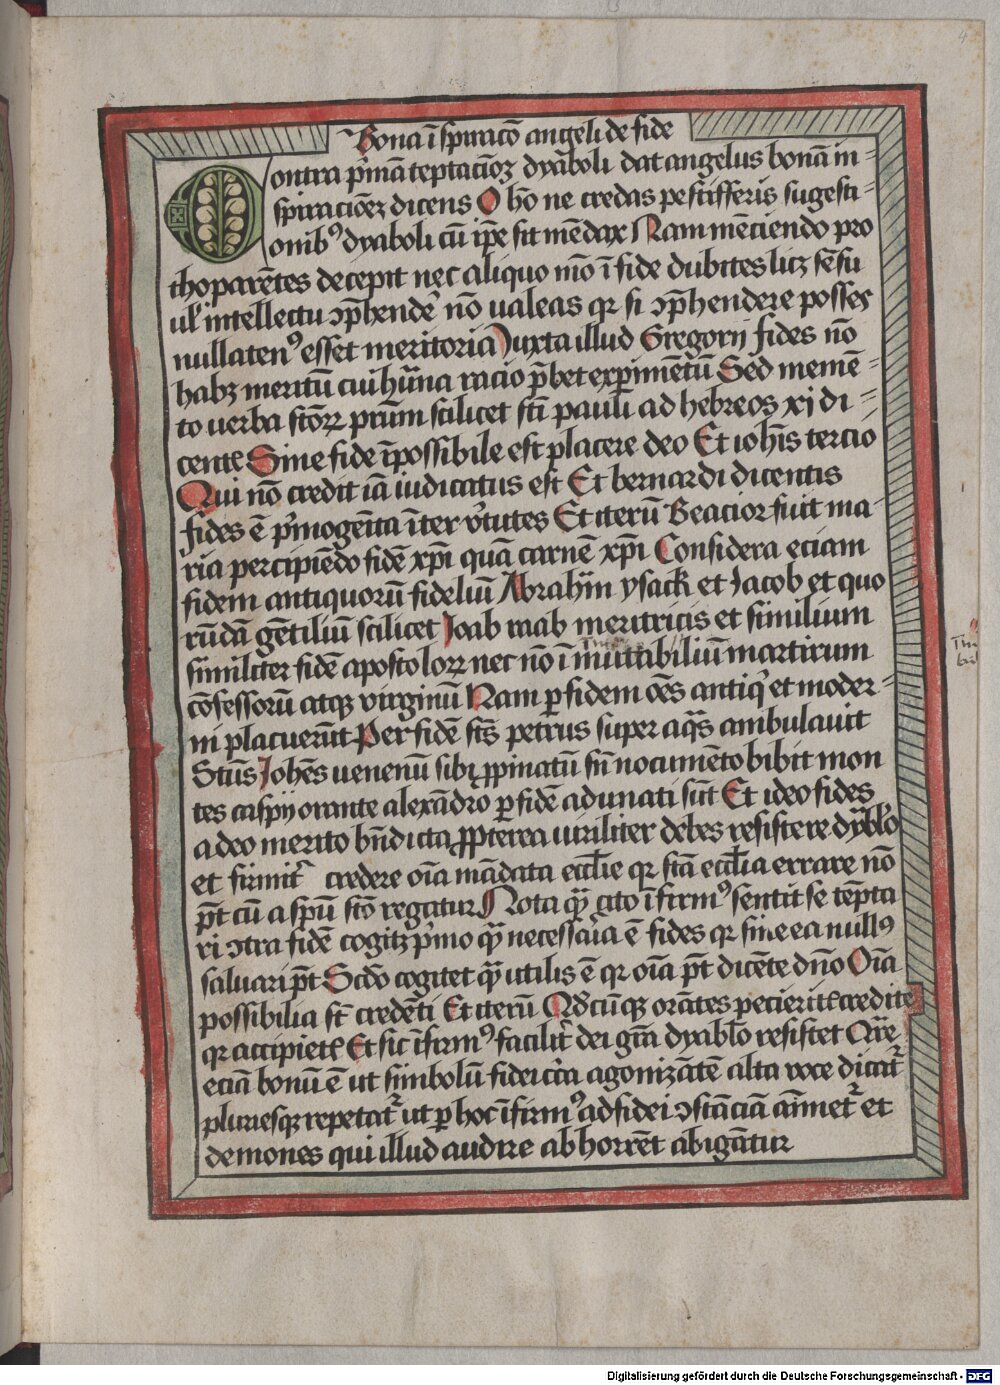 4
Bona īspiracō angeli de fide
Contra p̄mā tēptacioꝫ dyaboli dat angelus bonā in⸗
spiracioēꝫ dicens O hō ne credas pestifferis sugesti⸗
onibꝰ dyaboli cū ip̄e sit mēdax Nam mēciendo pro
thoparētes decepit nec aliquo mō ī fide dubites licꝫ sēsu
ul' intellectu ꝯp̄hendē nō ualeas qꝛ si ꝯp̄hendere posses
nullatenꝰ esset meritoria Juxta illud Gregorij fides nō
habꝫ meritū cui hūana racio p̄bet exꝑimētū Sed memē⸗
to uerba stōꝝ pr̄um scilicet sti pauli ad hebreos xj di⸗
cente Sine fide īpossibile est placere deo Et ioh̄is tercio
Qui nō credit iā iudicatus est Et bernardi dicentis
fides ē p̄mogēita īter v̄tutes Et iterū Beacior fuit ma⸗
ria percipiēdo fidē xp̄i quā carnē xp̄i Considera eciam
fidem antiquorū fideliū Abrahā ysack et Jacob et quo
rūdā gētiliū scilicet Joab raab meritricis et similium
similiter fidē apostoloꝝ nec nō ī mutabiliū martirum
cōfessorū atqꝫ virginū Nam ꝑ fidem oēs antiqi et moder⸗
ni placuerūt Per fidē sts petrus super aqas ambulauit
Stūs Johēs uenenū sibi ꝓpinatū sn̄ nocumēto bibit mon
tes caspij orante alexādro ꝑ fidē adunati sūt Et ideo fides
a deo merito bn̄dicta ꝓpterea uiriliter debes resistere dyablo
et firmit' credere oīa mādata eccl̄ie qꝛ stā eccl̄ia errare nō
pt̄ cū a spū stō regatur Nota qꝫ cito īfirmꝰ sentit se tēpta
ri ꝯtra fidē cogitꝫ p̄mo qꝫ necessaria ē fides qꝛ sine ea nullꝰ
saluari pt̄ Scdo cogitet qꝫ utilis ē qꝛ oīa pt̄ dicēte dn̄o Oīa
possibilia st̄ credēti Et iterū Qdcūqꝫ orātes pecierit̄ credite
qꝛ accipiet̄ Et sic īfirmꝰ facilit' dei grā dyablo resistet Qre
eciā bonū ē ut simbolū fidei circa agonizātē alta voce dicat'
pluriesqꝫ repetat' ut ꝑ hoc īfirmꝰ ad fidei ꝯstāciā aīmet' et
demones qui illud audire abhorrēt abigātur
Digitalisierung gefördert durch die Deutsche Forschungsgemeinschaft - DFG